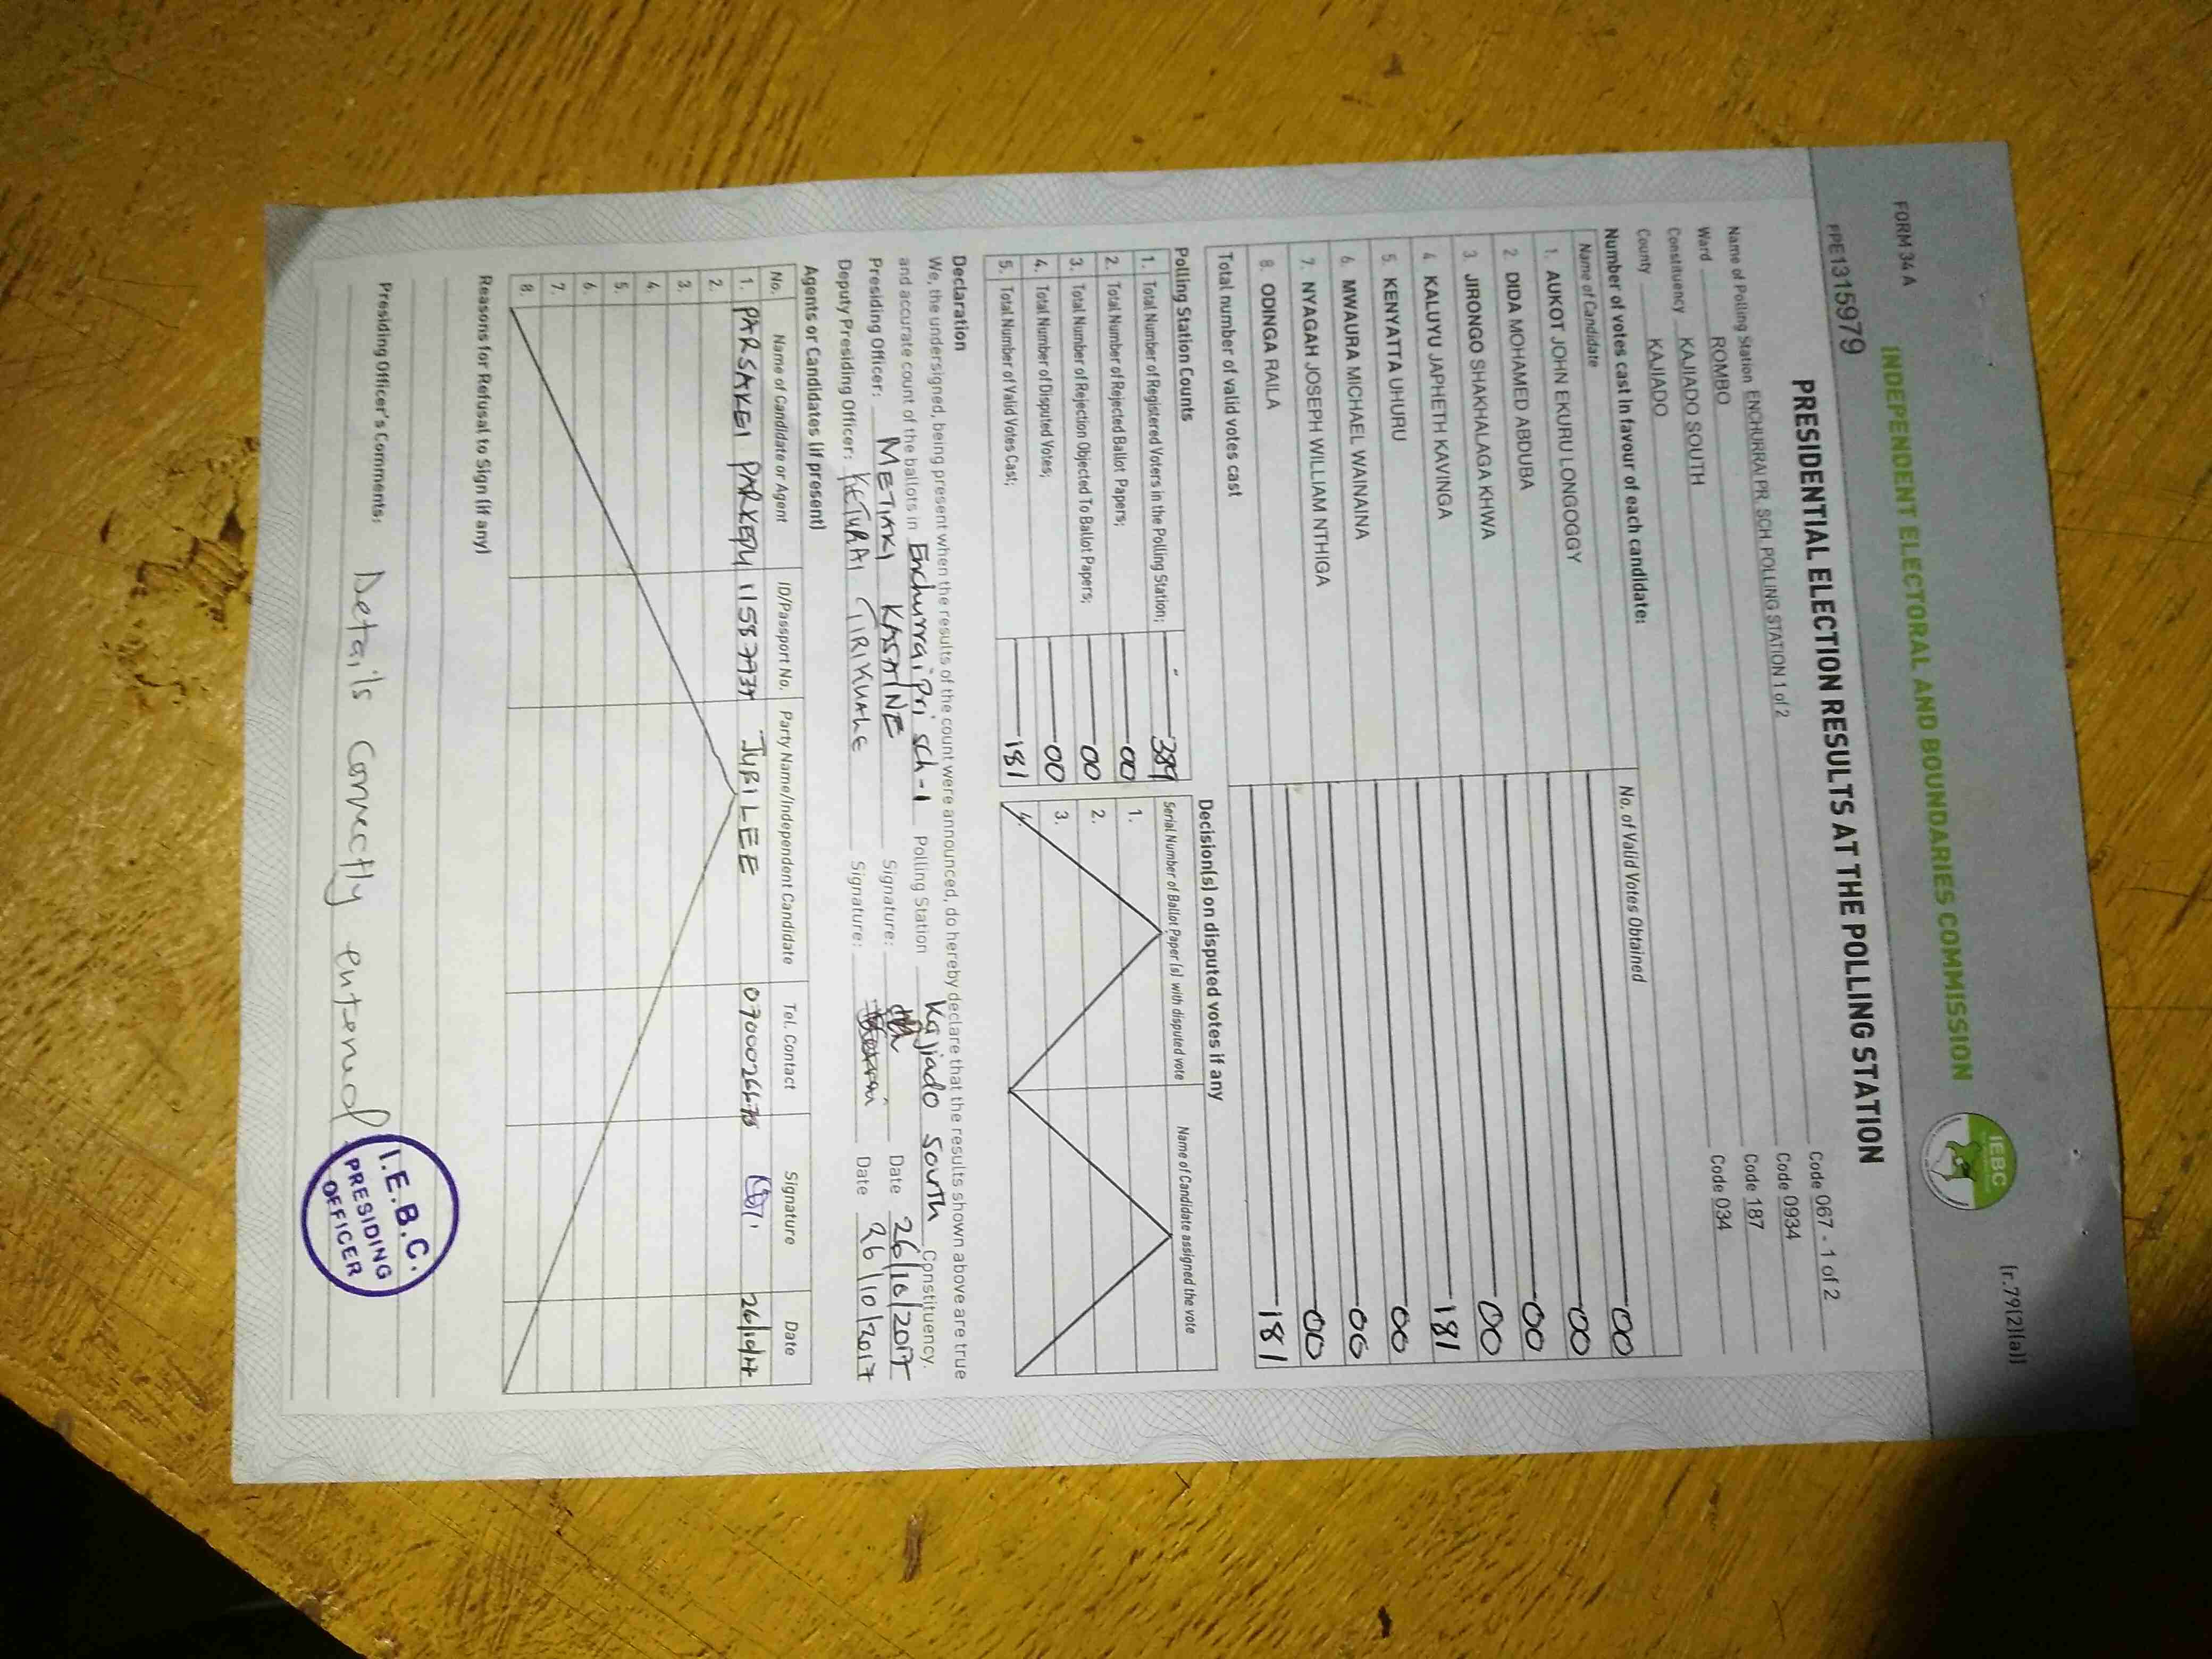 FORM 34 A
[r.79(2)(a)]
INDEPENDENT ELECTORAL AND BOUNDARIES COMMISSION
IEBC
PPE1315979
PRESIDENTIAL ELECTION RESULTS AT THE POLLING STATION
Name of Polling Station ENCHURRAI PR. SCH. POLLING STATION 1 of 2 Code 067 - 1 of 2
Ward ROMBO Code 0934
Constituency KAJIADO SOUTH Code 187
County KAJIADO Code 034
Number of votes cast in favour of each candidate:
Name of Candidate No. of Valid Votes Obtained
1. AUKOT JOHN EKURU LONGOGGY 00
2. DIDA MOHAMED ABDUBA 00
3. JIRONGO SHAKHALAGA KHWA 00
4. KALUYU JAPHETH KAVINGA 00
5. KENYATTA UHURU 181
6. MWAURA MICHAEL WAINAINA 00
7. NYAGAH JOSEPH WILLIAM NTHIGA 00
8. ODINGA RAILA 00
Total number of valid votes cast 181
Polling Station Counts
1. Total Number of Registered Voters in the Polling Station; 389
2. Total Number of Rejected Ballot Papers; 00
3. Total Number of Rejection Objected To Ballot Papers; 00
4. Total Number of Disputed Votes; 00
5. Total Number of Valid Votes Cast; 181
Decision(s) on disputed votes if any
Serial Number of Ballot Paper (s) with disputed vote Name of Candidate assigned the vote
1.
2.
3.
4.
Declaration
We, the undersigned, being present when the results of the count were announced, do hereby declare that the results shown above are true
and accurate count of the ballots in Enchurrai Pri sch -1 Polling Station Kajiado South Constituency.
Presiding Officer: METIAKI KASAINE Signature: Date 26/10/2017
Deputy Presiding Officer: KETURAI TIRIKUALE Signature: Date 26/10/2017
Agents or Candidates (if present)
No. Name of Candidate or Agent ID/Passport No. Party Name/Independent Candidate Tel. Contact Signature Date
1. PARSAKEI PARKEPU JUBILEE 26/10/17
2.
3.
4.
5.
6.
7.
8.
Reasons for Refusal to Sign (if any)
Presiding Officer's Comments: Details Correctly entered
I.E.B.C.
PRESIDING
OFFICER